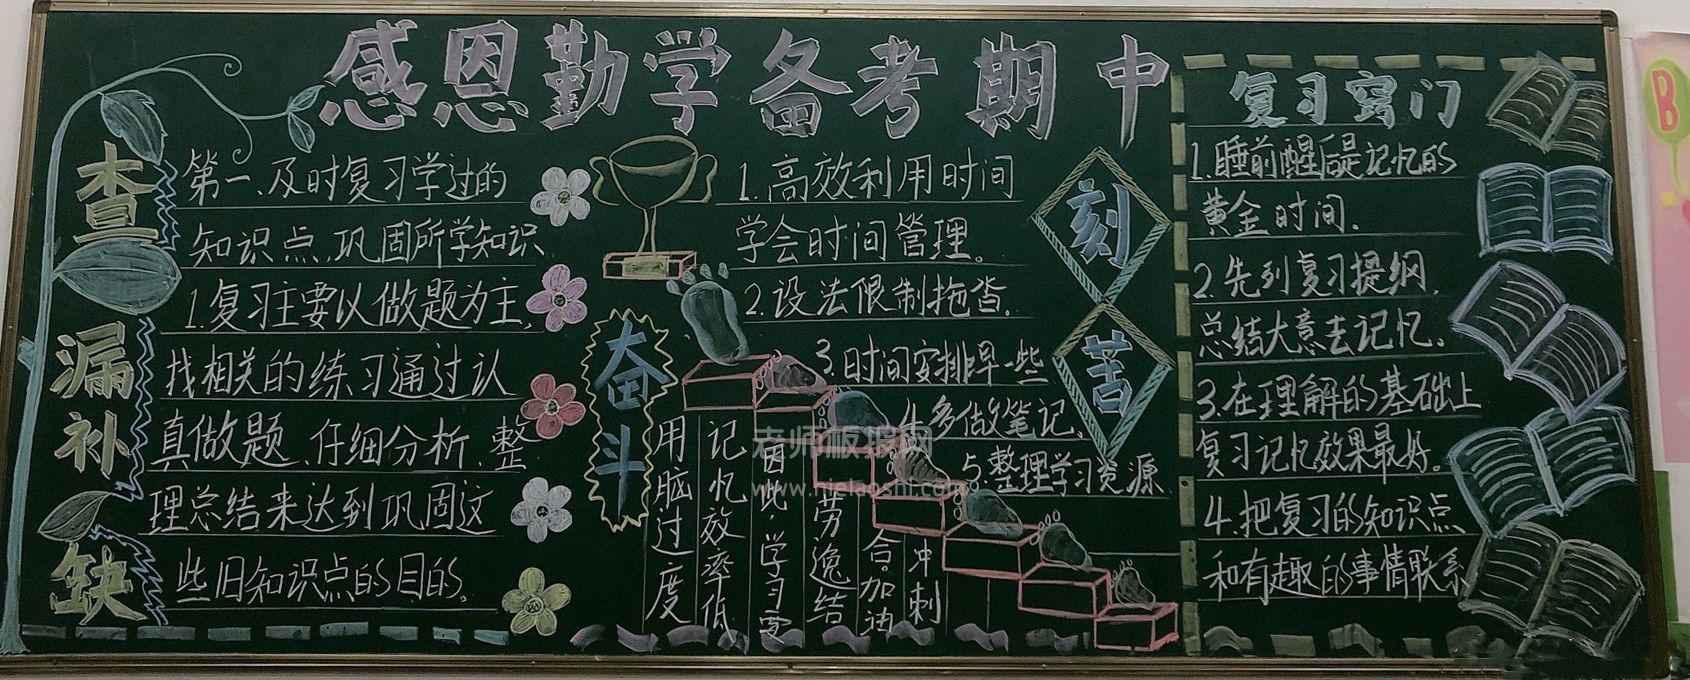 感恩勤学备考期中
查漏补缺
第一、及时复习学过的
知识点,巩固所学知识
1.复习主要以做题为主,
找相关的练习通过认
真做题、仔细分析、整
理总结来达到巩固这
些旧知识点的目的。
奋斗
1.高效利用时间
学会时间管理。
2.设法限制拖沓.
3.时间安排早一些
4.多做笔记、
5.整理学习资源
刻苦
用脑过度
记忆效率低
因此,学习要
劳逸结
合。加油
冲刺
复习窍门
1.睡前醒后是记忆的
黄金时间.
2.先列复习提纲,
总结大意去记忆。
3.在理解的基础上
复习记忆效果最好。
4.把复习的知识点
和有趣的事情联系
老师板报网
www.njelaoshi.com
B